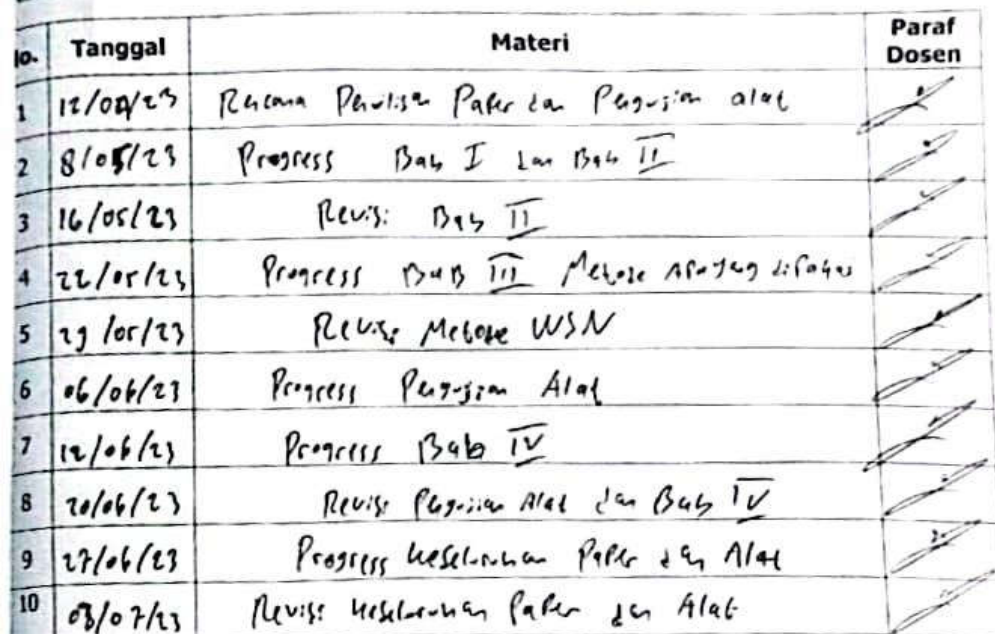 No. Tanggal Materi Paraf Dosen
1 12/04/23 Rencana Penulisan Paper dan Pengujian alat
2 8/05/23 Progress Bab I dan Bab II
3 16/05/23 Revisi Bab II
4 22/05/23 Progress BaB III Metode Apa yang dibahas
5 29/05/23 Revisi Metode WSN
6 06/06/23 Progress Pengujian Alat
7 12/06/23 Progress Bab IV
8 20/06/23 Revisi Pengujian Alat dan Bab IV
9 27/06/23 Progress keseluruhan Paper dan Alat
10 03/07/23 Revisi keseluruhan Paper dan Alat